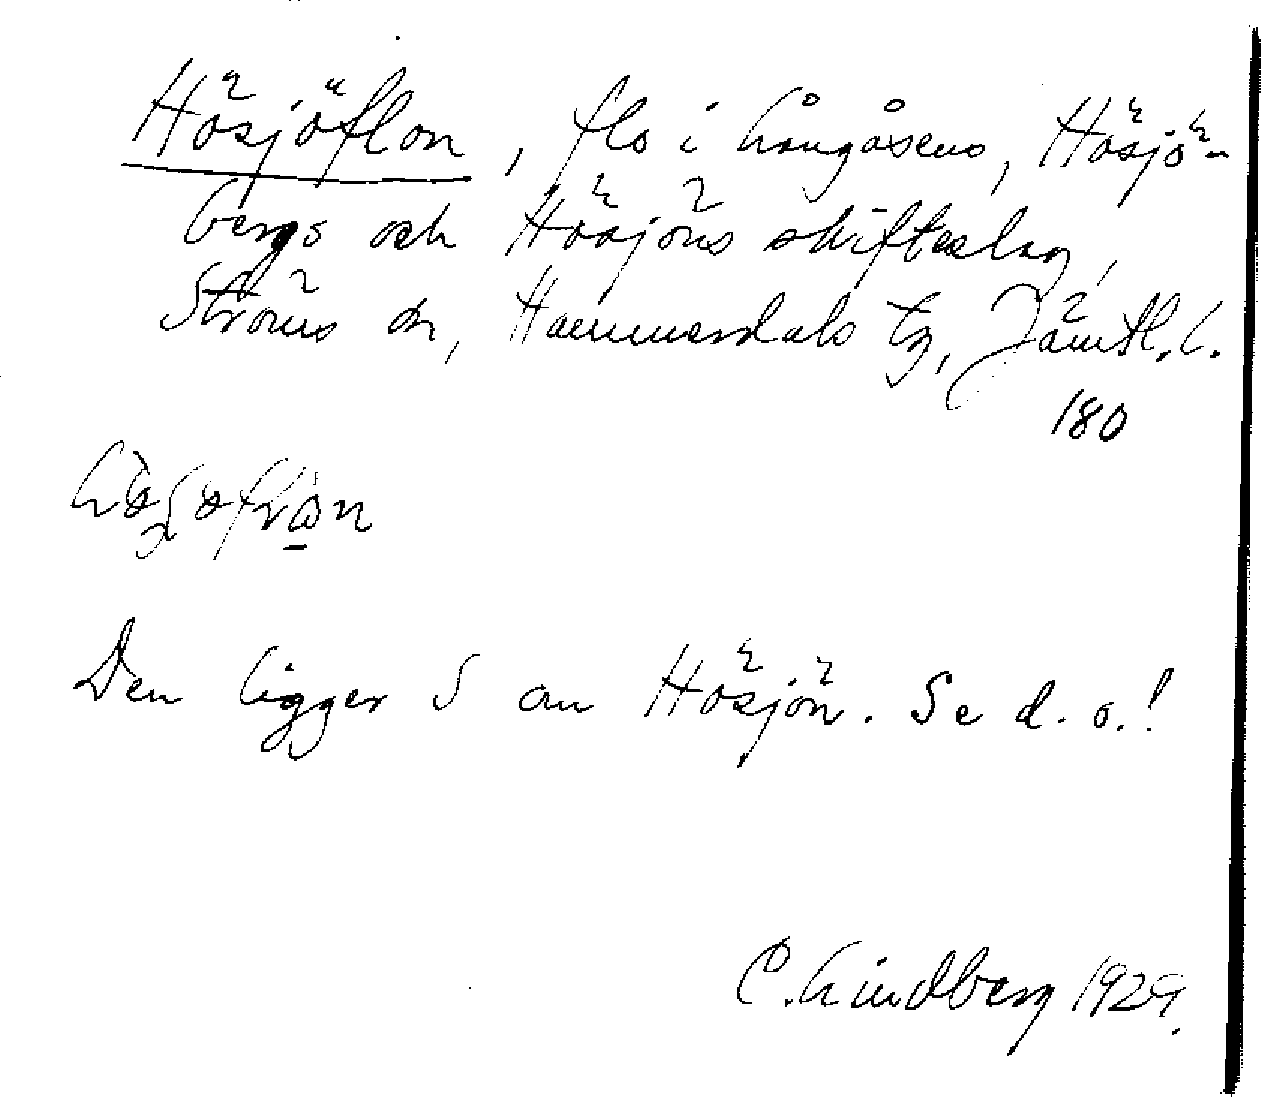 Hösjöflon, flo i Långåsens, Hösjö-
bergs och Hösjöns skifteslag,
Ströms sn, Hammerdals tg, Jämtl. l.
180
Den ligger S om Hösjön. Se d. o.!
C. Lindberg 1929.